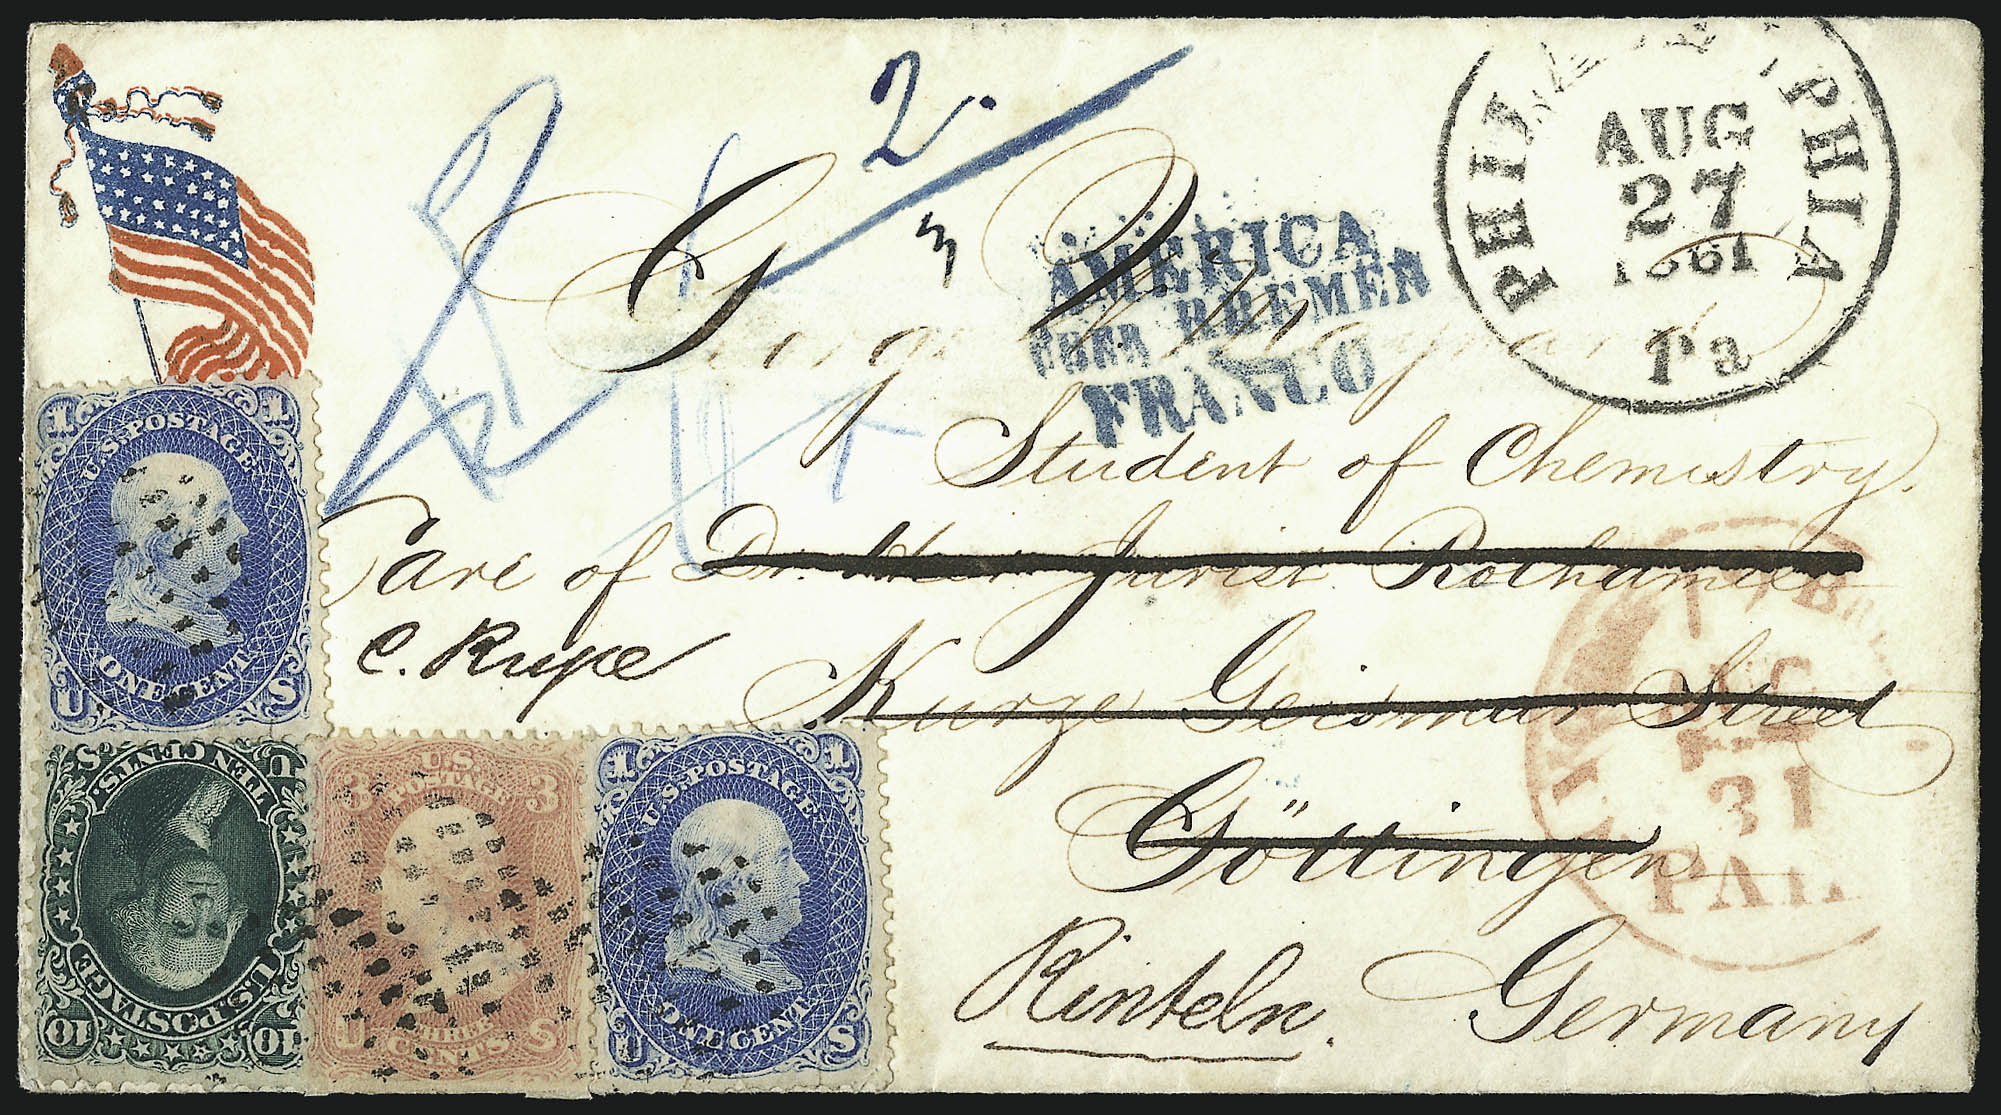 2.
3
PHILADELPHIA
AUG
27
1861
Pa
AMERICA
ÜBER BREMEN
FRANCO
Student of Chemistry.
Care of Dr. Jurist
C. Rupe
Kurze Geismar Street
Göttingen
Rinteln.
Germany
AUG
31
PAID
1 1
U.S. POSTAGE
ONE CENT
U S
U S
TEN CENTS.
U.S. POSTAGE
10 10
U.S.
POSTAGE
3 3
THREE
CENTS
U S
1 1
U.S. POSTAGE
ONE CENT
U S